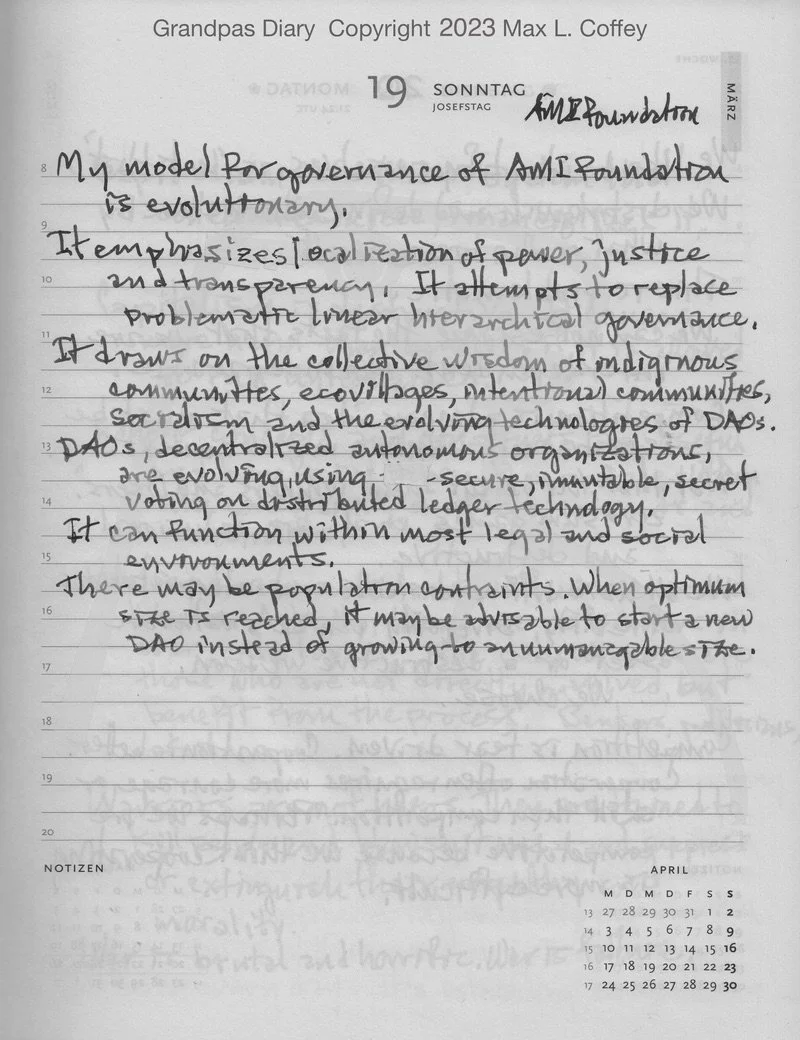 Grandpas Diary Copyright 2023 Max L. Coffey
19 SONNTAG
JOSEFSTAG
MÄRZ
AMI Foundation
8 My model for governance of AMI Foundation
is evolutionary.
9
It emphasizes localization of power, justice
10 and transparency. It attempts to replace
problematic linear hierarchical governance.
11
It draws on the collective wisdom of indignous
12 communities, ecovillages, intentional communities,
socialism and the evolving technologies of DAOs.
13 DAOs, decentralized autonomous organizations,
are evolving, using secure, imuntable, secret
14 voting on distributed ledger technology.
It can function within most legal and social
15 environments.
There may be population contraints. When optimum
16 size is reached, it may be advisable to start a new
DAO instead of growing to an unmanagable size.
17
18
19
20
NOTIZEN
APRIL
M D M D F S S
13 27 28 29 30 31 1 2
14 3 4 5 6 7 8 9
15 10 11 12 13 14 15 16
16 17 18 19 20 21 22 23
17 24 25 26 27 28 29 30